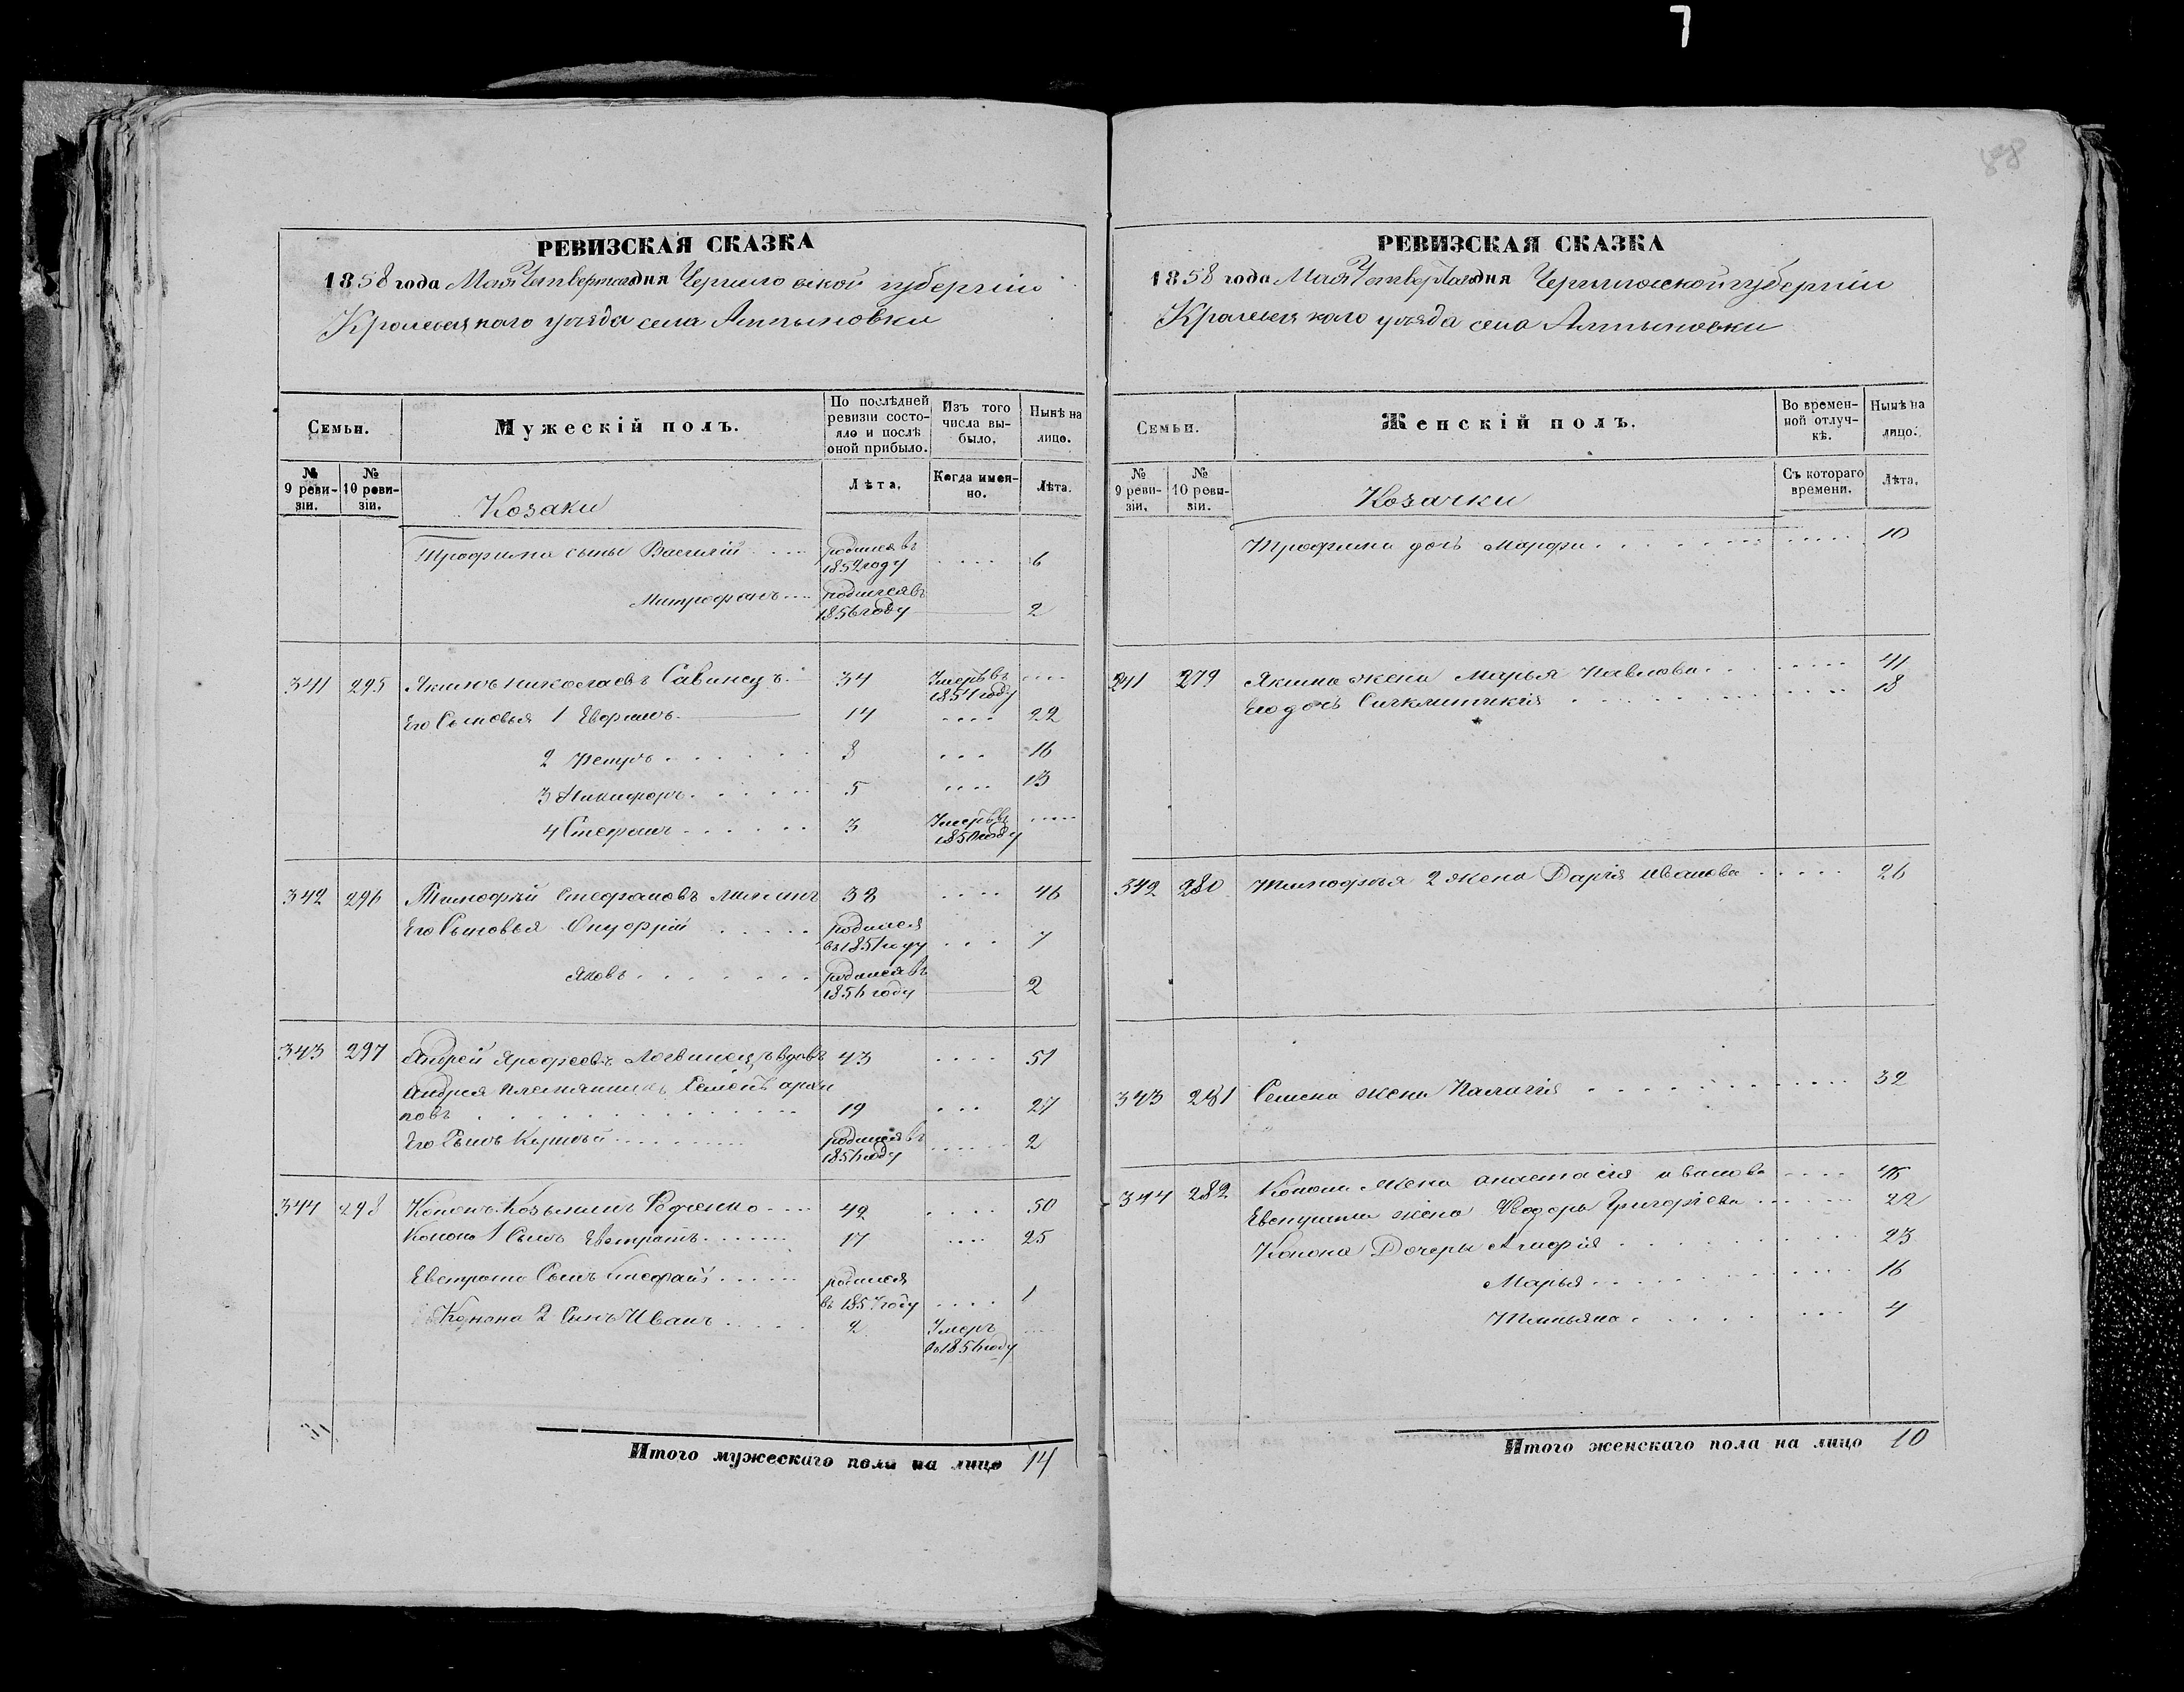 7
88
РЕВИЗСКАЯ СКАЗКА
1858 года Мая Четвертаго дня Черниговской губерніи
Кролевецкаго уѣзда села Алтыновки
Семьи.
Мужескій полъ.
По послѣдней ревизіи состояло и послѣ оной прибыло.
Изъ того числа выбыло.
Нынѣ на лицо.
№ 9 ревизіи.
№ 10 ревизіи.
Козаки
Лѣта.
Когда именно.
Лѣта.
Трофима сыны Василій родился въ 1852 году 6
Митрофанъ родился въ 1856 году 2
341 295 Якимъ Николаевъ Савинецъ 34 Умеръ въ 1851 году
Его Сыновья 1 Ефримъ 14 22
2 Петръ 8 16
3 Никифоръ 5 13
4 Стефанъ 3 Умеръ въ 1850 году
342 296 Тимофѣй Стефановъ 38 46
Его Сыновья Онуфрій родился въ 1851 году 7
Яковъ родился въ 1856 году 2
343 297 Андрей Ярофеевъ Логвинецъ вдовъ 43 51
Андрея племянникъ Семенъ
повъ 19 27
Его Сынъ родился въ 1856 году 2
344 298 Кононъ Козьминъ Феденко 42 50
Конона 1 Сынъ Евстратъ 17 25
Евстрата Сынъ Стефанъ родился въ 1857 году 1
Конона 2 Сынъ Иванъ 2 Умеръ въ 1856 году
Итого мужескаго пола на лицо 14
РЕВИЗСКАЯ СКАЗКА
1858 года Мая Четвертаго дня Черниговской губерніи
Кролевецкаго уѣзда села Алтыновки
Семьи.
Женскій полъ.
Во временной отлучкѣ.
Нынѣ на лицо.
№ 9 ревизіи.
№ 10 ревизіи.
Козачки
Съ котораго времени.
Лѣта.
Трофима дочь Марфа 10
241 279 Якима жена Марья Павлова 41
Его дочь Синклитикія 18
342 280 Тимофѣя 2 жена Дарія Иванова 26
343 281 Семена жена Палагія 32
344 282 Конона жена Анастасія Иванова
Евстрата жена Феодора Григоріева 22
Конона Дочеры Агафія 23
Марья 16
Татьяна 4
Итого женскаго пола на лицо 10